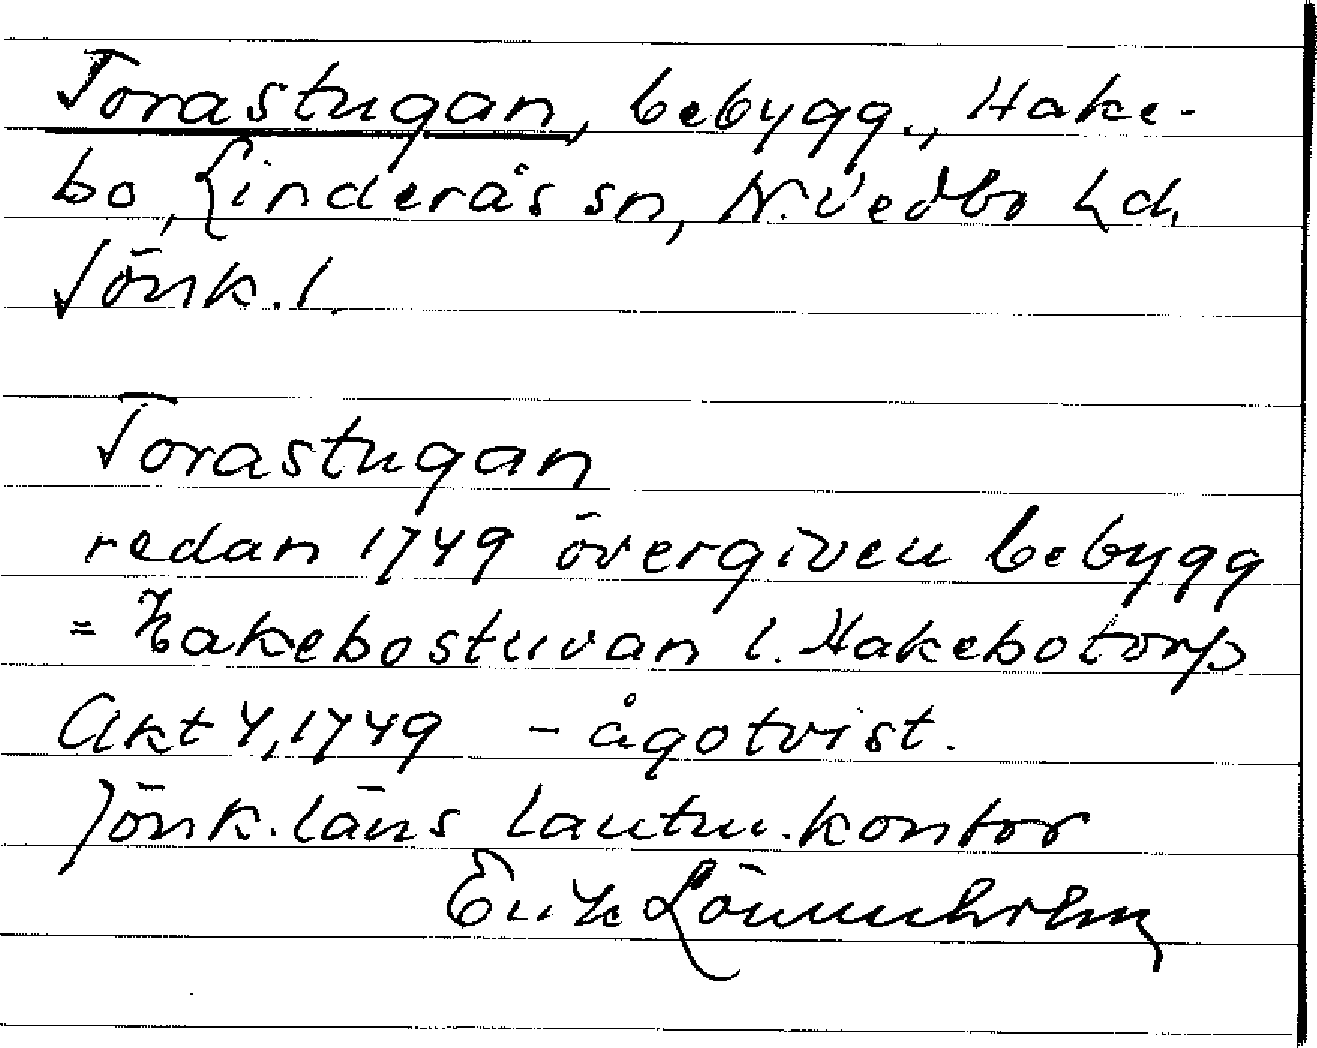 Torastugan, bebygg., Hake-
bo, Linderås sn, N. Vedbo hd,
Jönk. l.
Torastugan
redan 1749 övergiven bebygg
= Hakebostuvan l. Hakebotorp
Akt 4, 1749 - ägotvist.
Jönk. läns lantm. kontor
Erik Lönnholm